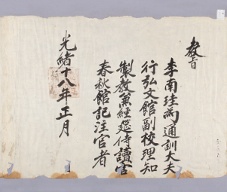 教旨
李南珪爲通訓大夫
行弘文館副校理知
製教兼經筵侍讀官
春秋館記注官者
光緖十八年正月